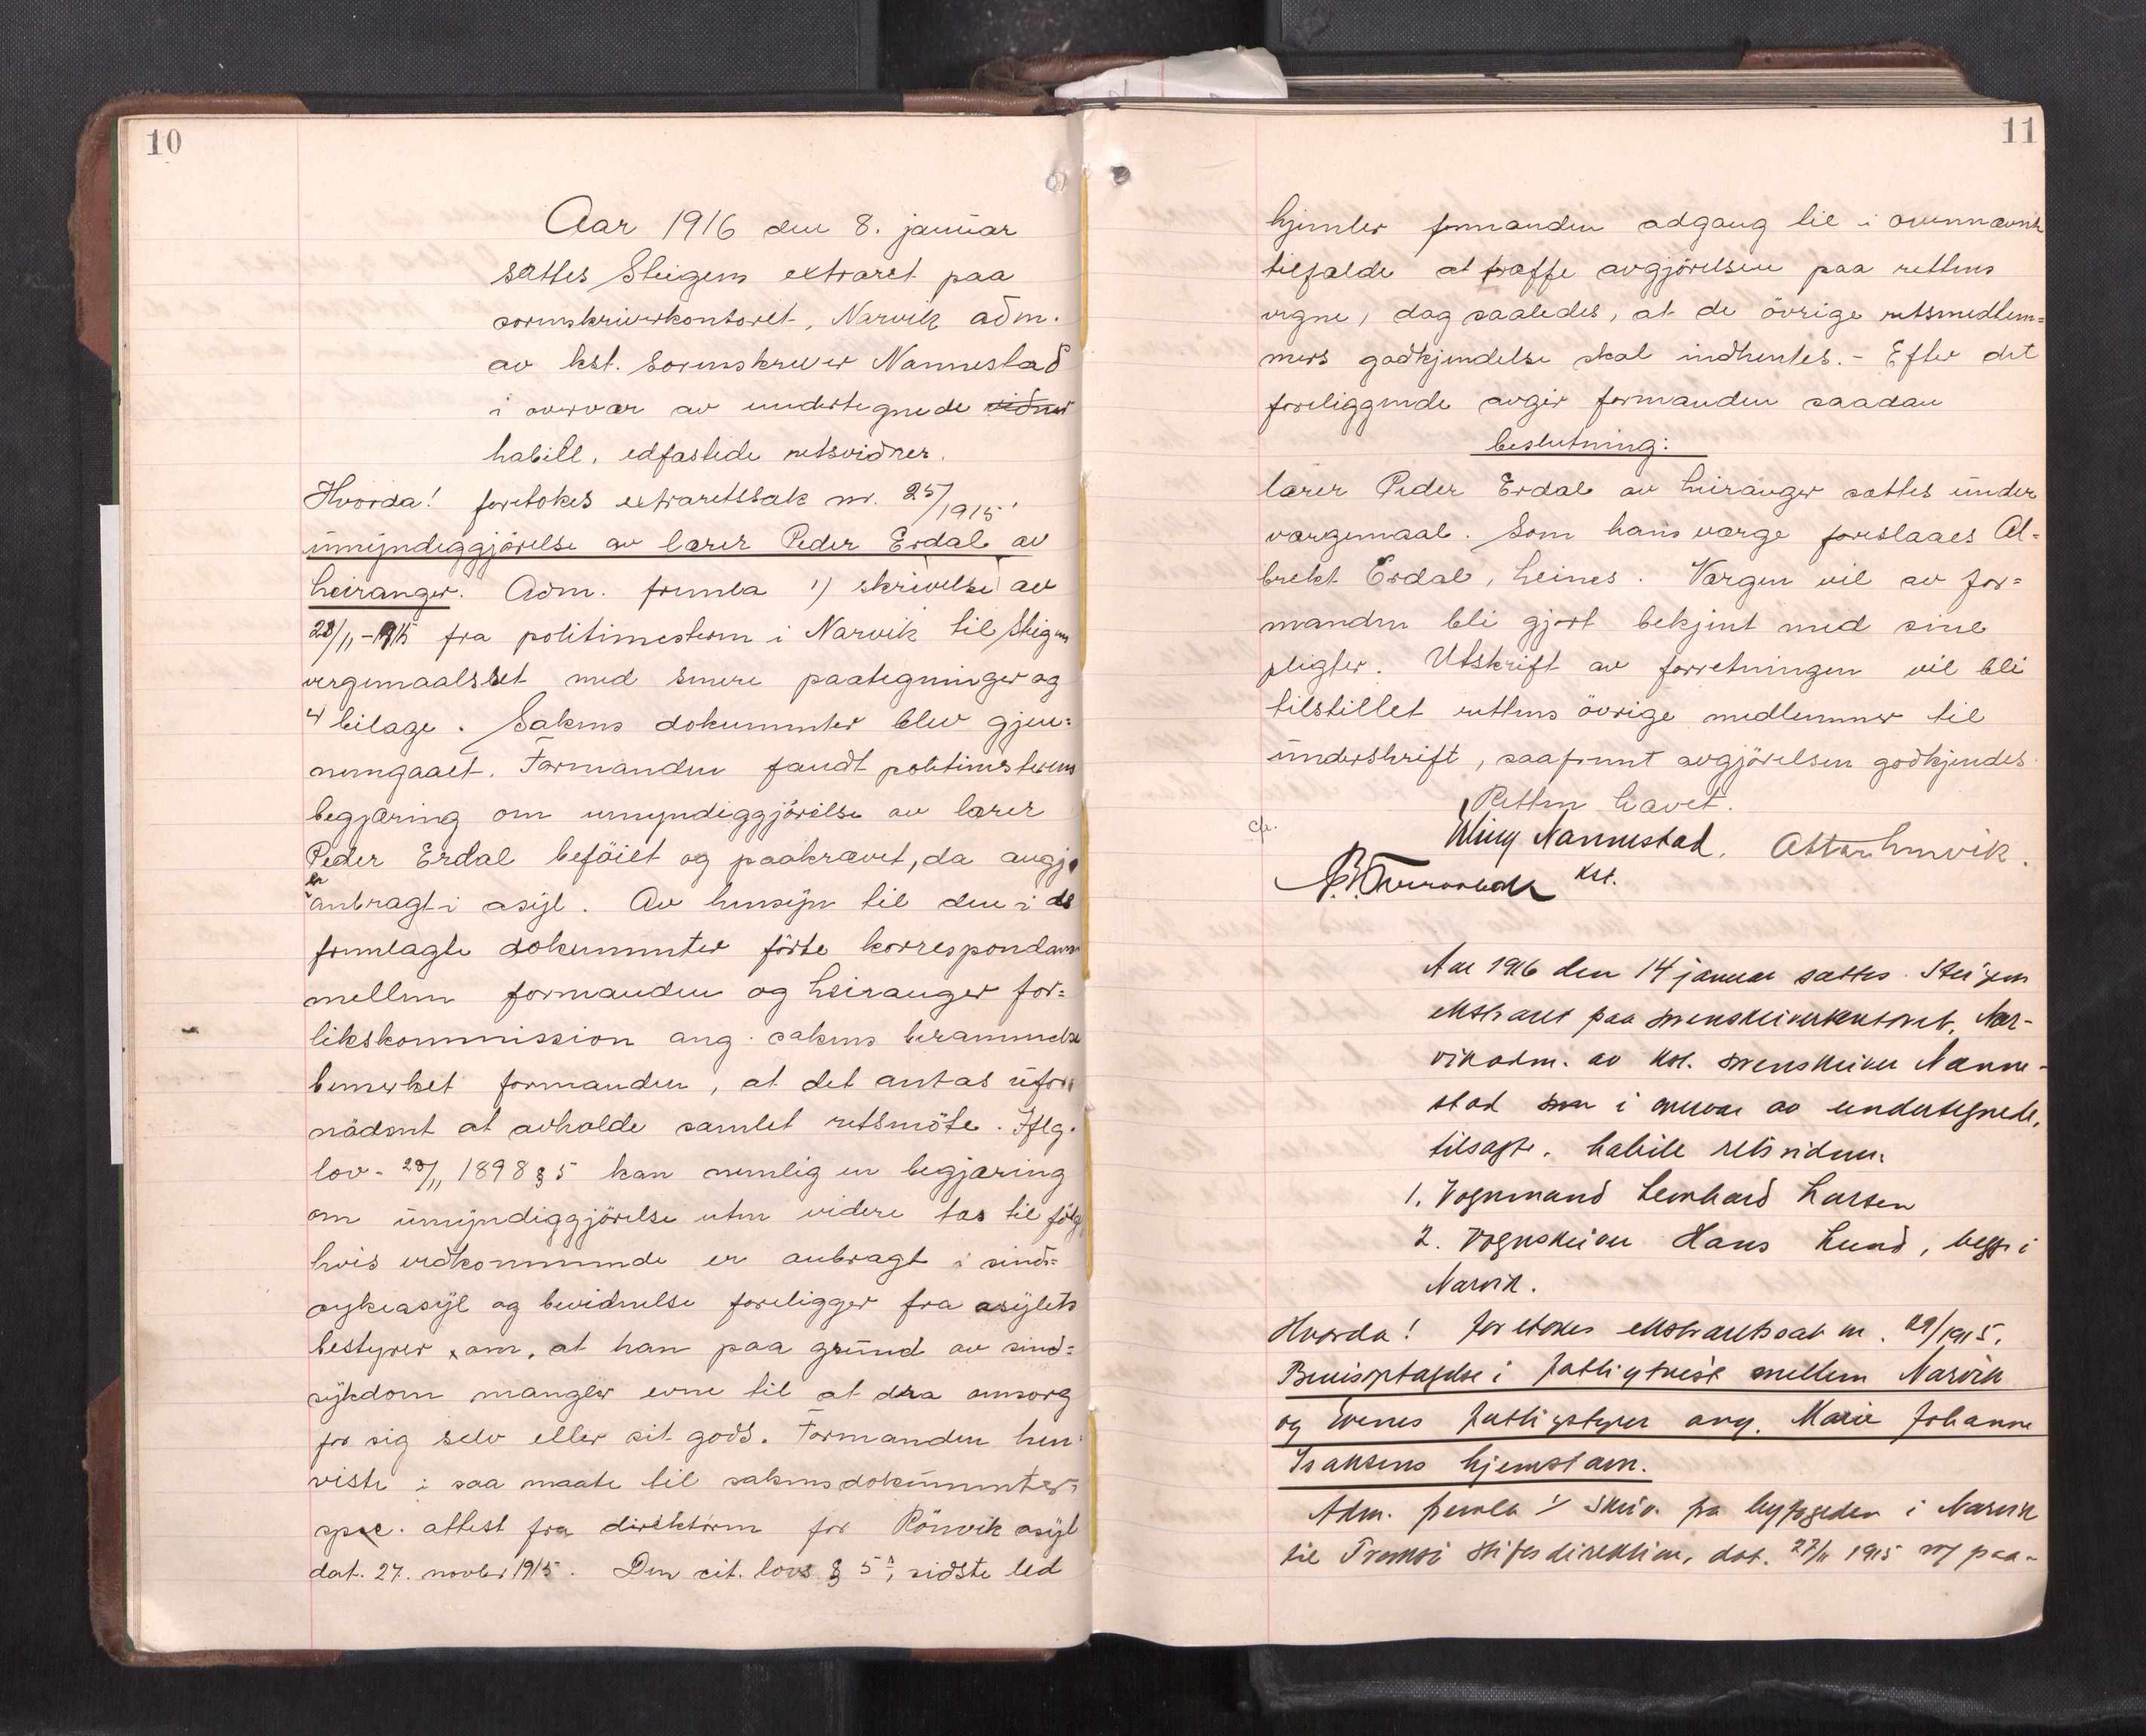 10
Aar 1916 den 8. januar
sattes Steigens extraret paa
sorenskriverkontoret, Narvik adm.
av kst. sorenskriver Nannestad
i overvær av undertegnede vidner
habile, edfæstede retsvidner.
Hvorda! foretokes extraretssak nr. 25/1915.
umyndiggjörelse av lærer Peder Erdal av
Leiranger. Adm. fremla 1) skrivelse av
28/11-1915 fra politimesteren i Narvik til Steigen
vergemaalsret med senere paategninger og
4 bilage. Sakens dokumenter blev gjen=
nemgaaet. Formanden fandt politimesterens
begjæring om umyndiggjörelse av lærer
Peder Erdal beföiet og paakrævet, da angj.
er
anbragt i asyl. Av hensyn til den i de
fremlagte dokumenter förte korrespondanse
mellem formanden og Leiranger for=
likskommission ang. sakens berammelse
bemerket formanden, at det antas ufor=
nödent at avholde samlet retsmöte. Iflg.
lov. 28/11 1898 § 5 kan nemlig en begjæring
om umyndiggjörelse uten videre tas til fölge
hvis vedkommende er anbragt i sinds=
sykeasyl og bevidnelse foreligger fra asylets
bestyrer om, at han paa grund av sind=
sykdom mangler evne til at dra omsorg
for sig selv eller sit gods. Formanden hen=
viste i saa maate til sakens dokumenter,
spec. attest fra direktören for Rönvik asyl
dat. 27. novbr 1915. Den cit. lovs § 5, sidste led
11
hjemler formanden adgang til i ovennævnte
tilfælde at træffe avgjörelsen paa rettens
vegne, dog saaledes, at de övrige retsmedlem=
mers godkjendelse skal indhentes. - Efter det
foreliggende avgir formanden saadan
beslutning:
Lærer Peder Erdal av Leiranger sættes under
værgemaal. Som hans værge foreslaaes Al-
brekt Erdal, Leines. Værgen vil av for=
manden bli gjort bekjent med sine
pligter. Utskrift av forretningen vil bli
tilstillet rettens övrige medlemmer til
underskrift, saafremt avgjörelsen godkjendes.
Retten hævet.
Nannestad.
kst.
Aar 1916 den 14 januar sattes Steigens
ekstraret paa sorenskriverkontoret, Nar-
vik adm. av kst. sorenskriver Nanne-
stad som i overvær av undertegnede,
tilsagte, habile retsvidner.
1. Vognmand Leonhard Larsen
2. Vognskriver Hans Lund, begge i
Narvik.
Hvorda! foretokes ekstraretssak nr. 29/1915.
Bevisoptagelse i fattigtvist mellem Narvik
og Evenes fattigstyrer ang. Marie Johanne
Isaksens hjemstavn.
Adm. fremla 1/ skriv. fra byfogeden i Narvik
til Tromsö stiftsdirektion, dat. 27/11 1915 m/ paa-